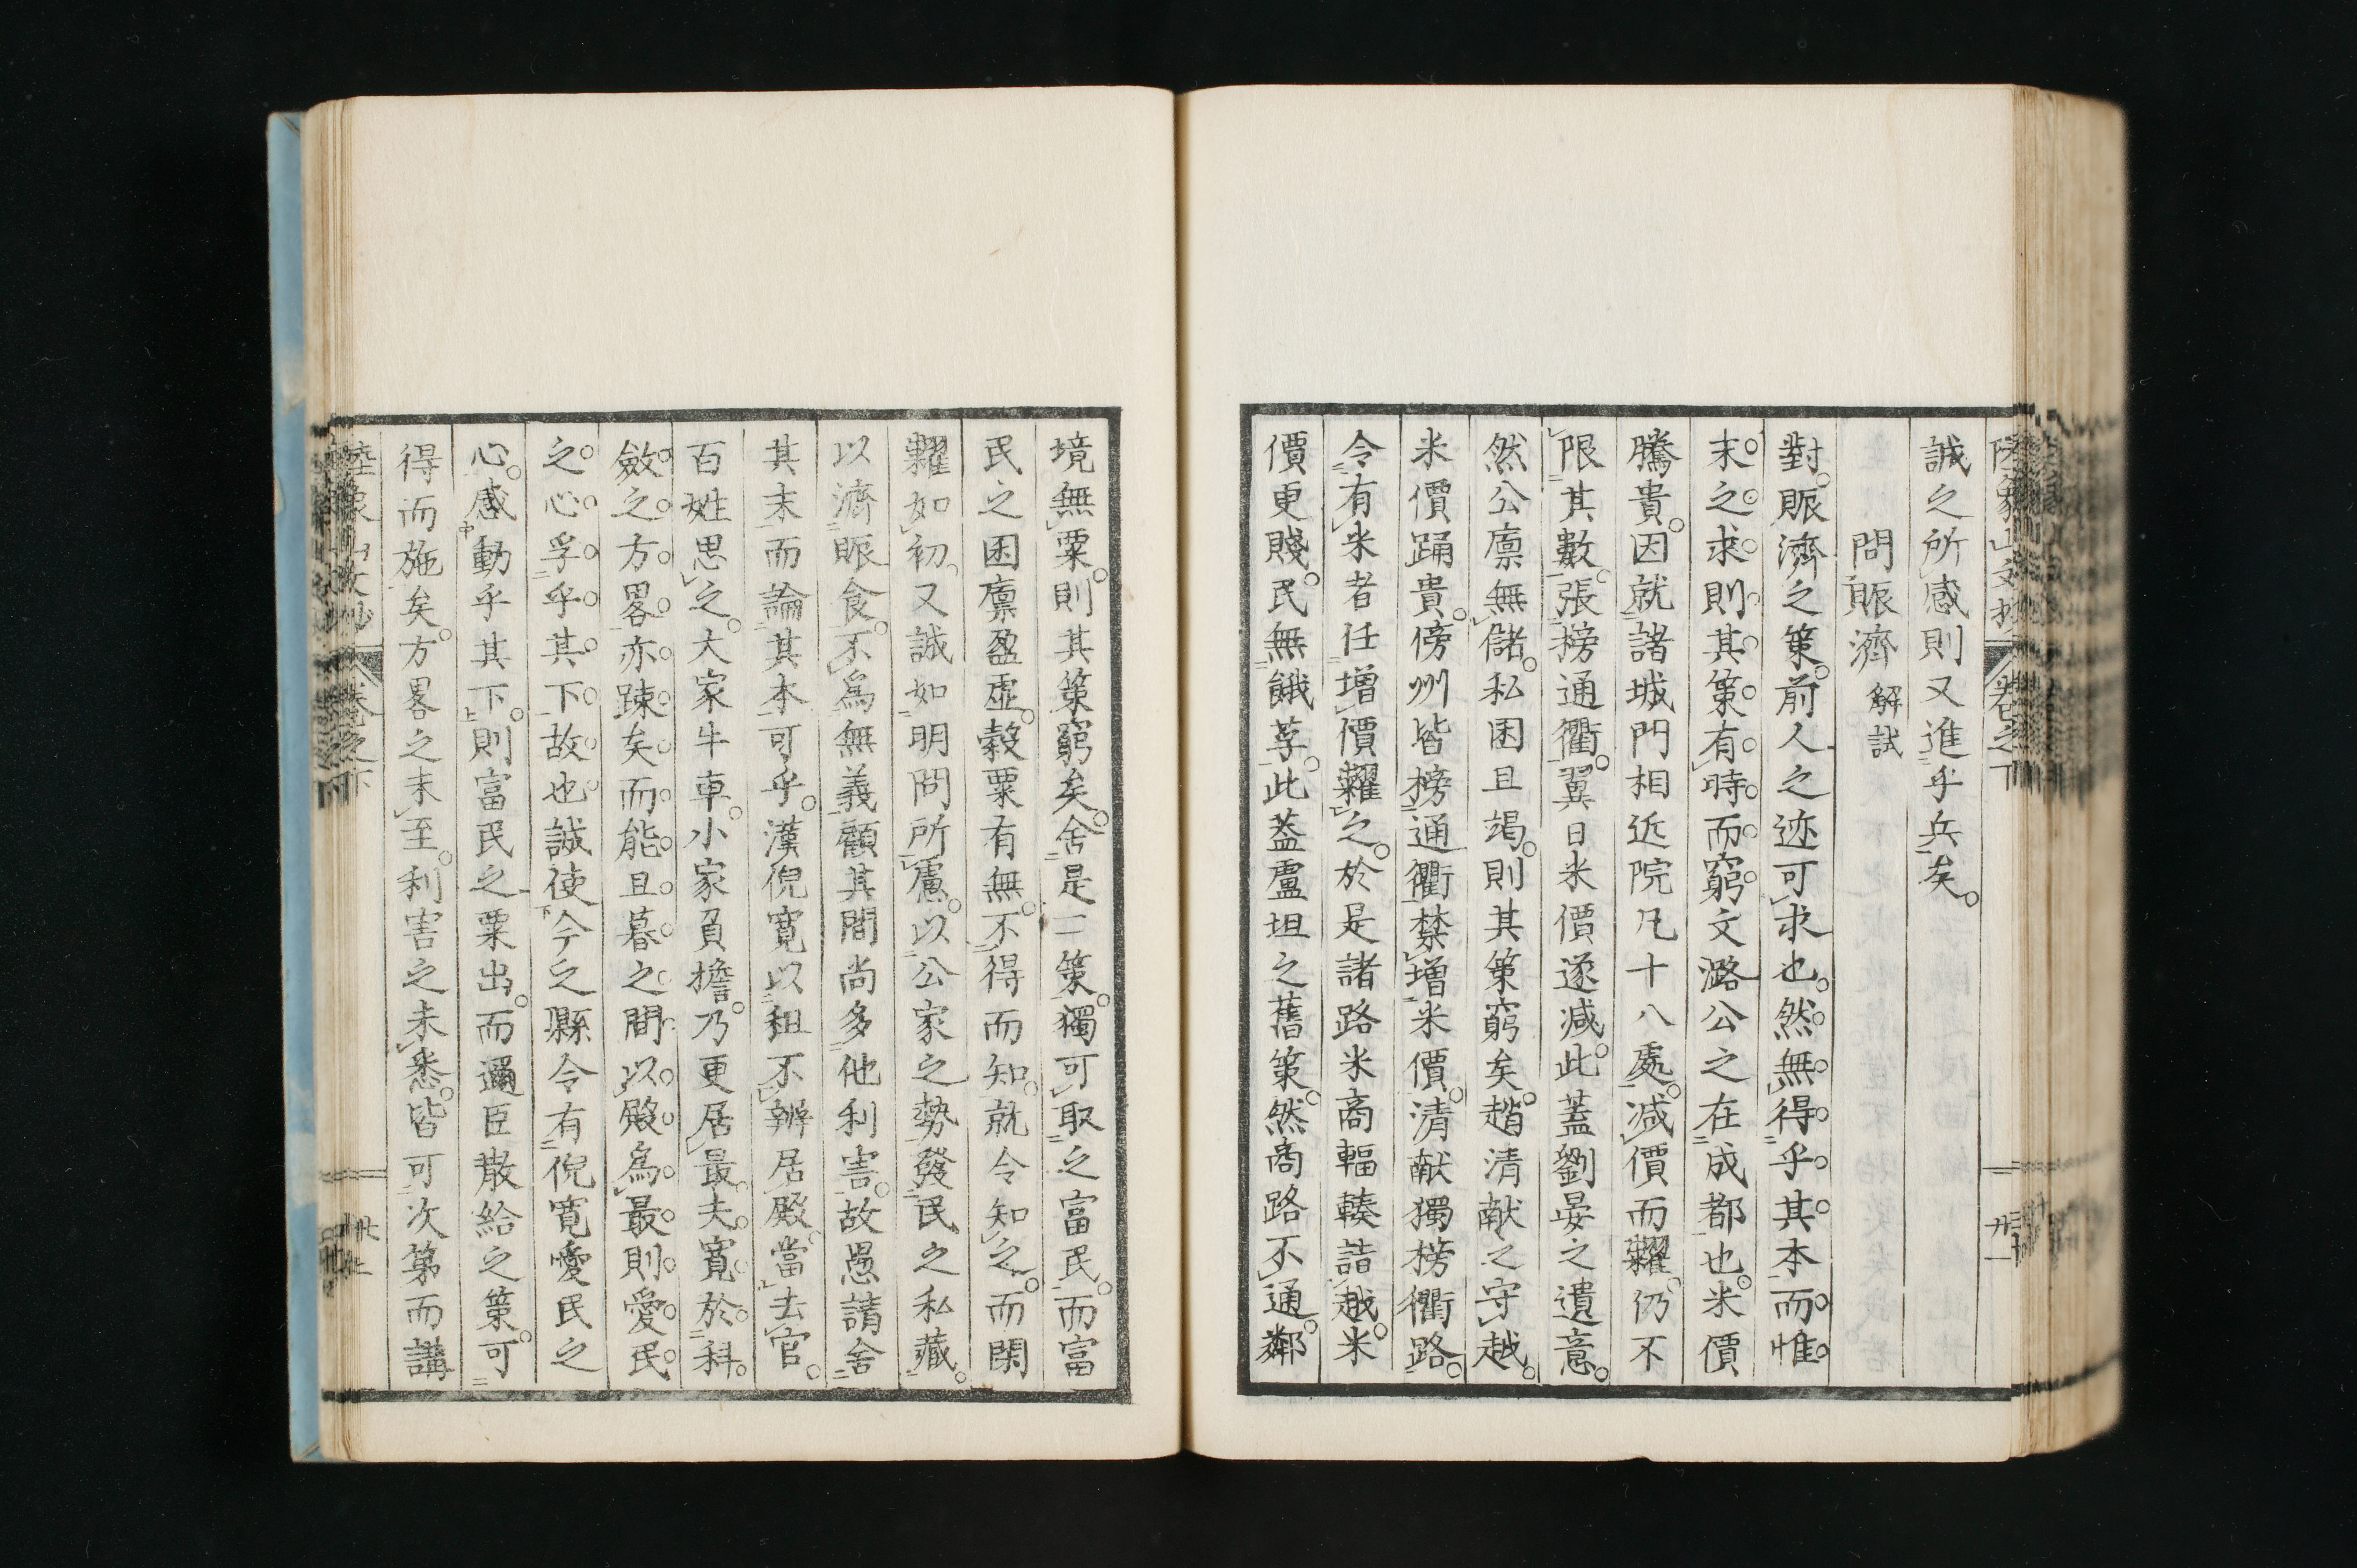 誠之所感則又進乎兵矣。
問賑濟 解試
對。賑濟之策。前人之迹可求也。然無得乎其本而惟
末之求則其策有時而窮文潞公之在成都也。米價
騰貴。因就諸城門相近院凡十八處。減價而糶。仍不
限其數。張榜通衢。翼日米價遂減。此蓋劉晏之遺意。
然公廩無儲。私囷且竭。則其策窮矣。趙清献之守越。
米價踊貴。傍州皆榜通衢禁增米價。清献獨榜衢路。
令有米者任增價糶之。於是諸路米商輻輳詣越。米
價更賤。民無餓莩。此盖盧坦之舊策。然商路不通。鄰
境無粟。則其策窮矣。舍是二策。獨可取之富民。而富
民之囷廩盈虛。穀粟有無。不得而知。就令知之。而閉
糶如初。又誠如明問所慮。以公家之勢發民之私藏。
以濟賑食。不爲無義顧其間尚多他利害。故愚請舍
其末而論其本可乎。漢倪寬以租不辨居殿。當去官。
百姓思之。大家牛車。小家負擔。乃更居最。夫寬於科。
斂之方畧亦踈矣而能且暮之間以殿爲最則愛民
之心孚乎其下故也誠使今之縣令有倪寬愛民之
心。感動乎其下。則富民之粟出。而邇臣散給之策。可
得而施矣。方畧之未至。利害之未悉。皆可次第而講